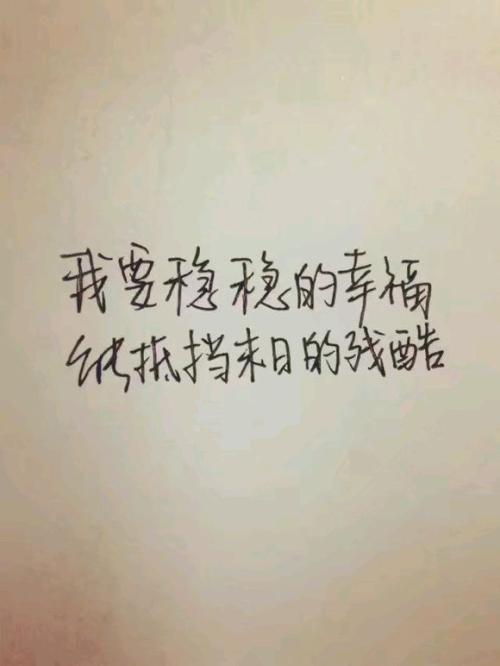 我要稳稳的幸福
能抵挡末日的残酷